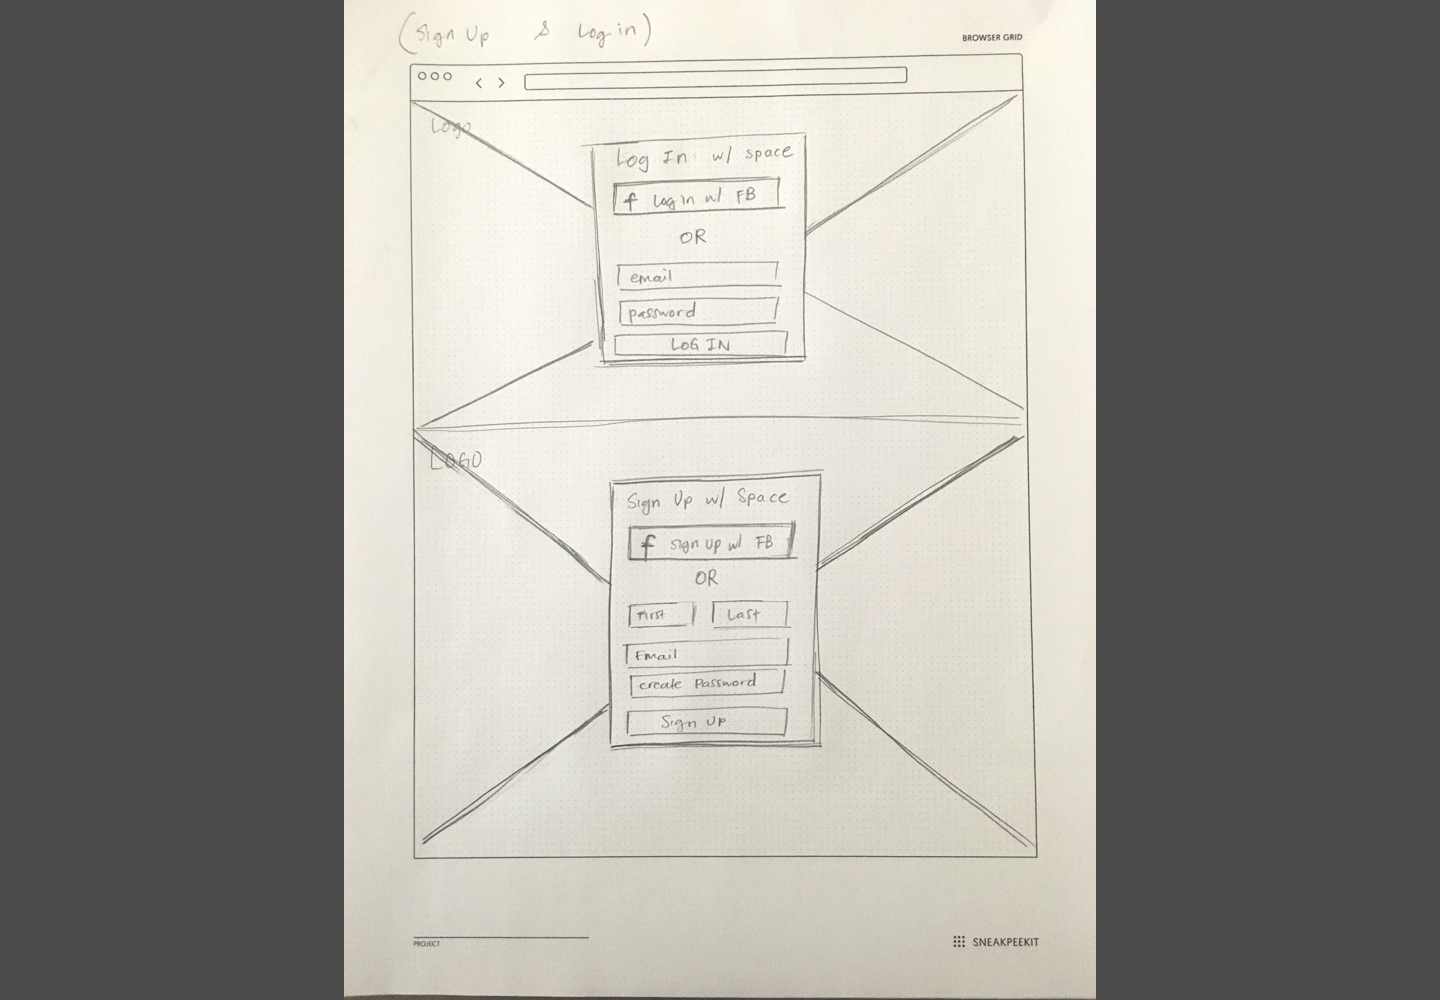 (Sign Up & Log in)
BROWSER GRID
Logo
Log In w/ space
f Log in w/ FB
OR
email
password
LOG IN
LOGO
Sign Up w/ Space
f sign up w/ FB
OR
First Last
Email
create Password
Sign UP
PROJECT
SNEAKPEEKIT